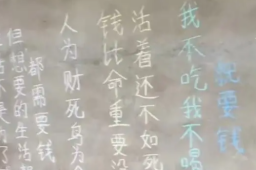 要钱
我不吃我不喝
活着还不如死
钱比命重要没
人为财死鸟为
都需要钱
但想要的生活都
不是为了